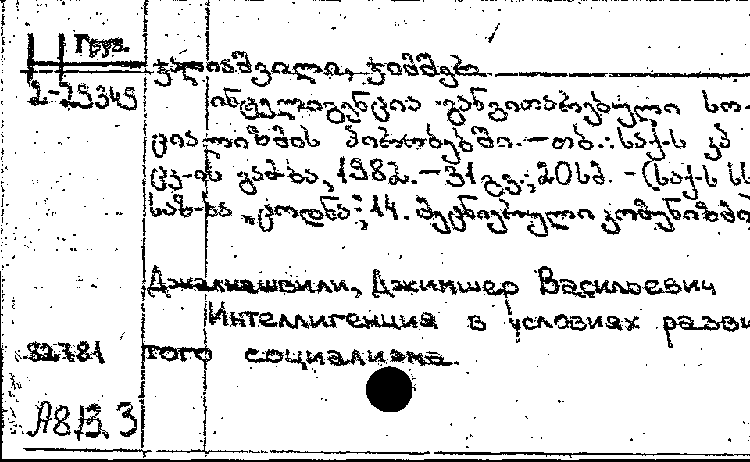 Груз.
ჯალიაშვილი, ჯიმშერ
2-29349
ინტელიგენცია განვითარებული სო-
ციალიზმის პირობებში.-თბ.: საქ-ს კპ
ცკ-ის გამ-ბა, 1982.-31გვ.; 20სმ. -(საქ-ს სს
საზ-ბა „ცოდნა"; 14. მეცნიერული კომუნიზმი
Джалиашвили, Джимшер Васильевич
Интеллигенция в условиях разви
82781 того социализма.
А8 3. 3